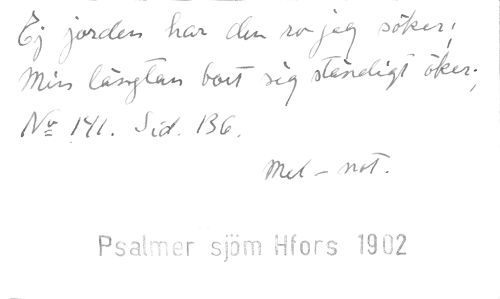 Ej jorden har den ro jag söker,
Min längtan bort sig ständigt öker;
No 141. Sid. 136.
Mel-not.
Psalmer sjöm Hfors 1902